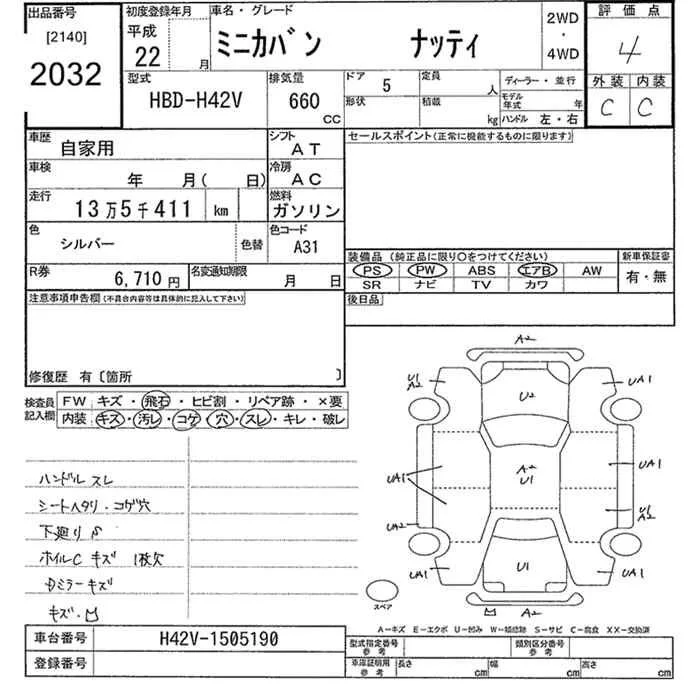 出品番号
[2140]
2032
初度登録年月
平成
22 月
車名・グレード
ミニカバン ナッティ
2WD
・
4WD
評価点
4
外装 内装
C C
型式
HBD-H42V
排気量
660
CC
ドア 5
形状
定員 人
積載 kg
ディーラー・並行
モデル年式 年
ハンドル 左・右
車歴 自家用
シフト AT
車検 年 月( 日)
冷房 AC
走行 13万5千411 km
燃料 ガソリン
色 シルバー 色替
色コード A31
R券 6,710円
名変通知期限 月 日
セールスポイント(正常に機能するものに限ります)
装備品(純正品に限り○をつけてください)
PS PW ABS エアB AW
SR ナビ TV カワ
新車保証書
有・無
後日品
注意事項申告欄(不具合内容等は具体的に記入して下さい)
修復歴 有〔箇所 〕
検査員記入欄
FW キズ・飛石・ヒビ割・リペア跡・×要
内装 キズ・汚レ・コゲ・穴・スレ・キレ・破レ
ハンドル スレ
シートヘタリ・コゲ穴
下廻りS
ホイルC キズ 1枚欠
Dミラーキズ
キズ・凹
A2
U1
A2
UA1
U2
A2
U1
UA1
UA1
U1
A2
UA2
UA1
U1
UA1
凹 A2
スペア
A-キズ E-エクボ U-凹み W-補修跡 S-サビ C-腐食 XX-交換済
車台番号 H42V-1505190
登録番号
型式指定番号
参考
類別区分番号
参考
車庫証明用
参考
長さ cm
幅 cm
高さ cm